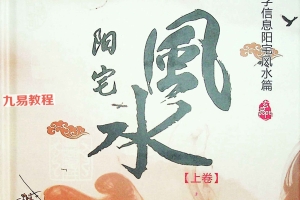 学信息阳宅风水篇
阳宅
風水
九易教程
【上卷】